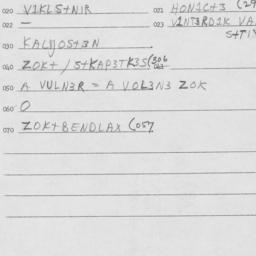 020 V1KLS+N1R
021 HON1C+3 (29
022 —
023 V1N+3RD1K VA
S+T1
030 KALIJOS+3N
040 ZOK+ / S+KAP3TK3S(306
050 A VULN3R = A VOL3N3 ZOK
060 O
070 ZOK+8ENDLAX (057